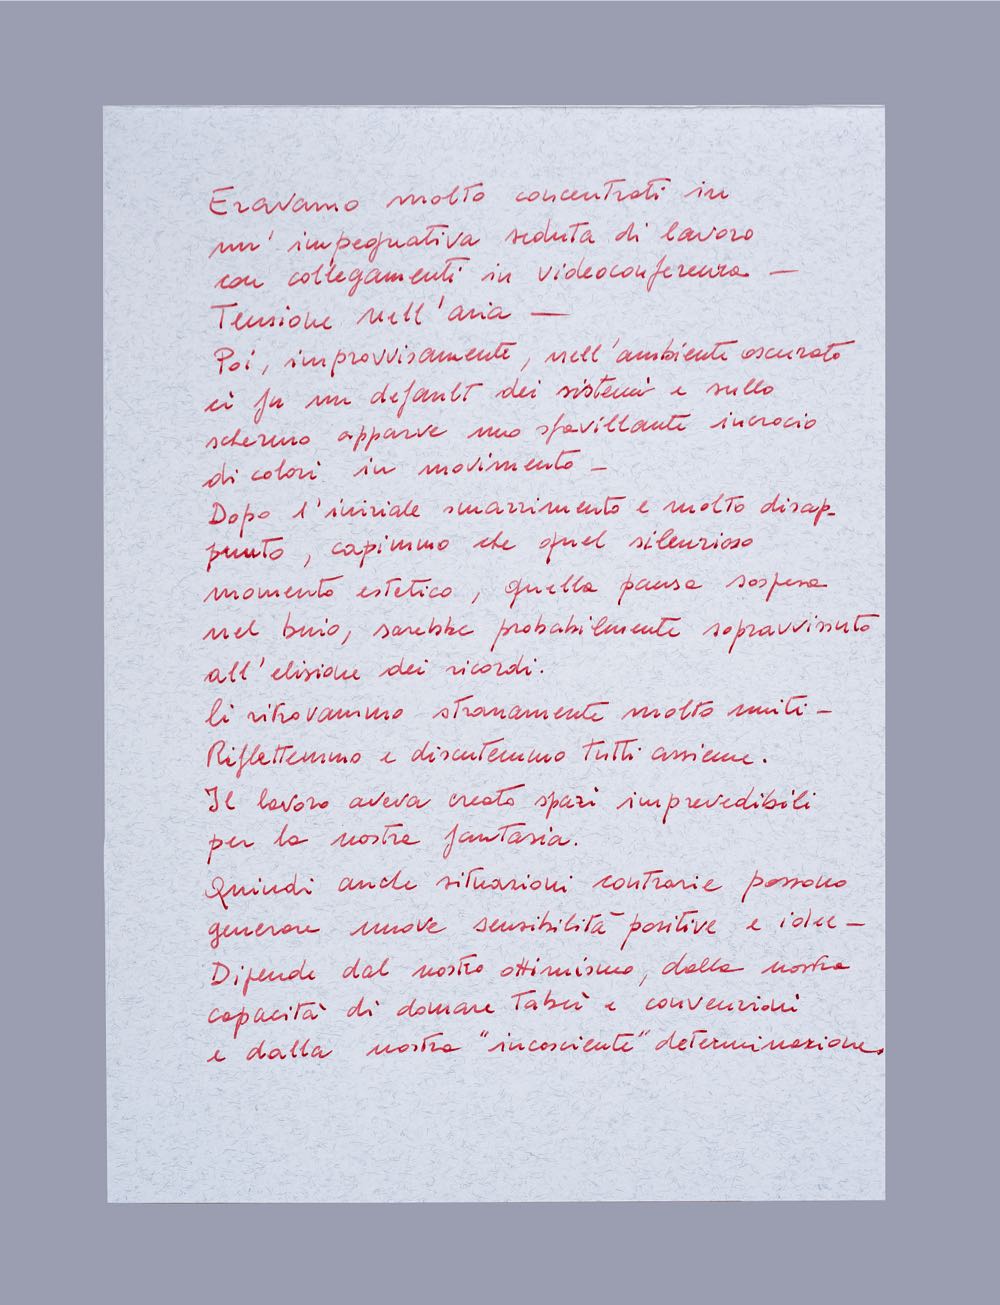 Eravamo molto concentrati in
un' impegnativa seduta di lavoro
con collegamenti in videoconferenza —
Tensione nell'aria —
Poi, improvvisamente, nell'ambiente oscurato
ci fu un default dei sistemi e sullo
schermo apparve uno sfavillante incrocio
di colori in movimento —
Dopo l'iniziale smarrimento e molto disap-
punto, capimmo che quel silenzioso
momento estetico, quella pausa sospesa
nel buio, sarebbe probabilmente sopravvissuto
all'elisione dei ricordi.
Ci ritrovammo stranamente molto uniti —
Riflettemmo e discutemmo tutti assieme.
Il lavoro aveva creato spazi imprevedibili
per la nostra fantasia.
Quindi anche situazioni contrarie possono
generare nuove sensibilità positive e idee —
Dipende dal nostro ottimismo, dalla nostra
capacità di domare Tabù e convenzioni
e dalla nostra "incosciente" determinazione.